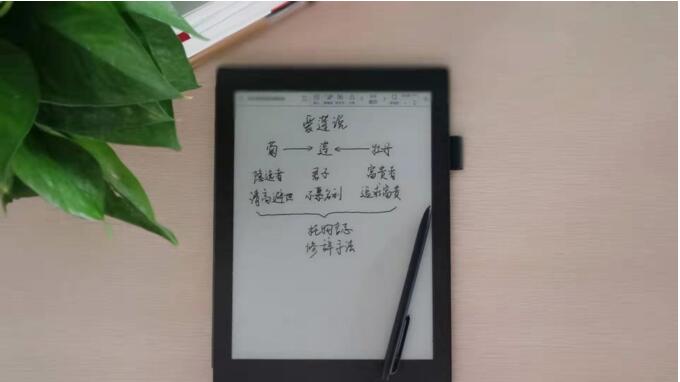 爱莲说
菊 → 莲 ← 牡丹
隐逸者 君子 富贵者
清高避世 不慕名利 追求富贵
托物言志
修辞手法